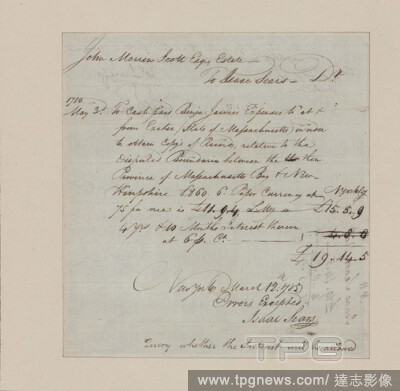 John Morin Scott Esqr Estate
To Isaac Sears Dr
1780
May 3d To Cash paid Benja Jarvis Expenses to at &
from Exeter (State of Massachusetts) in order
to obtain Copys of Records, relative to the
Disputed Boundaria between the
Province of Massachusetts Bay & New
Hampshire £860 6 Paper Currency at N York Cy
75 for one is £11.9.4 L My a £15.5.9
4 Yrs & 10 Months Interest thereon
at 6 p. Ct 4.8.8
£19.14.5
New York March 12th 1785
Errors Excepted
Isaac Sears
Query whether the Interest
TPG
www.tpgnews.com / 達志影像